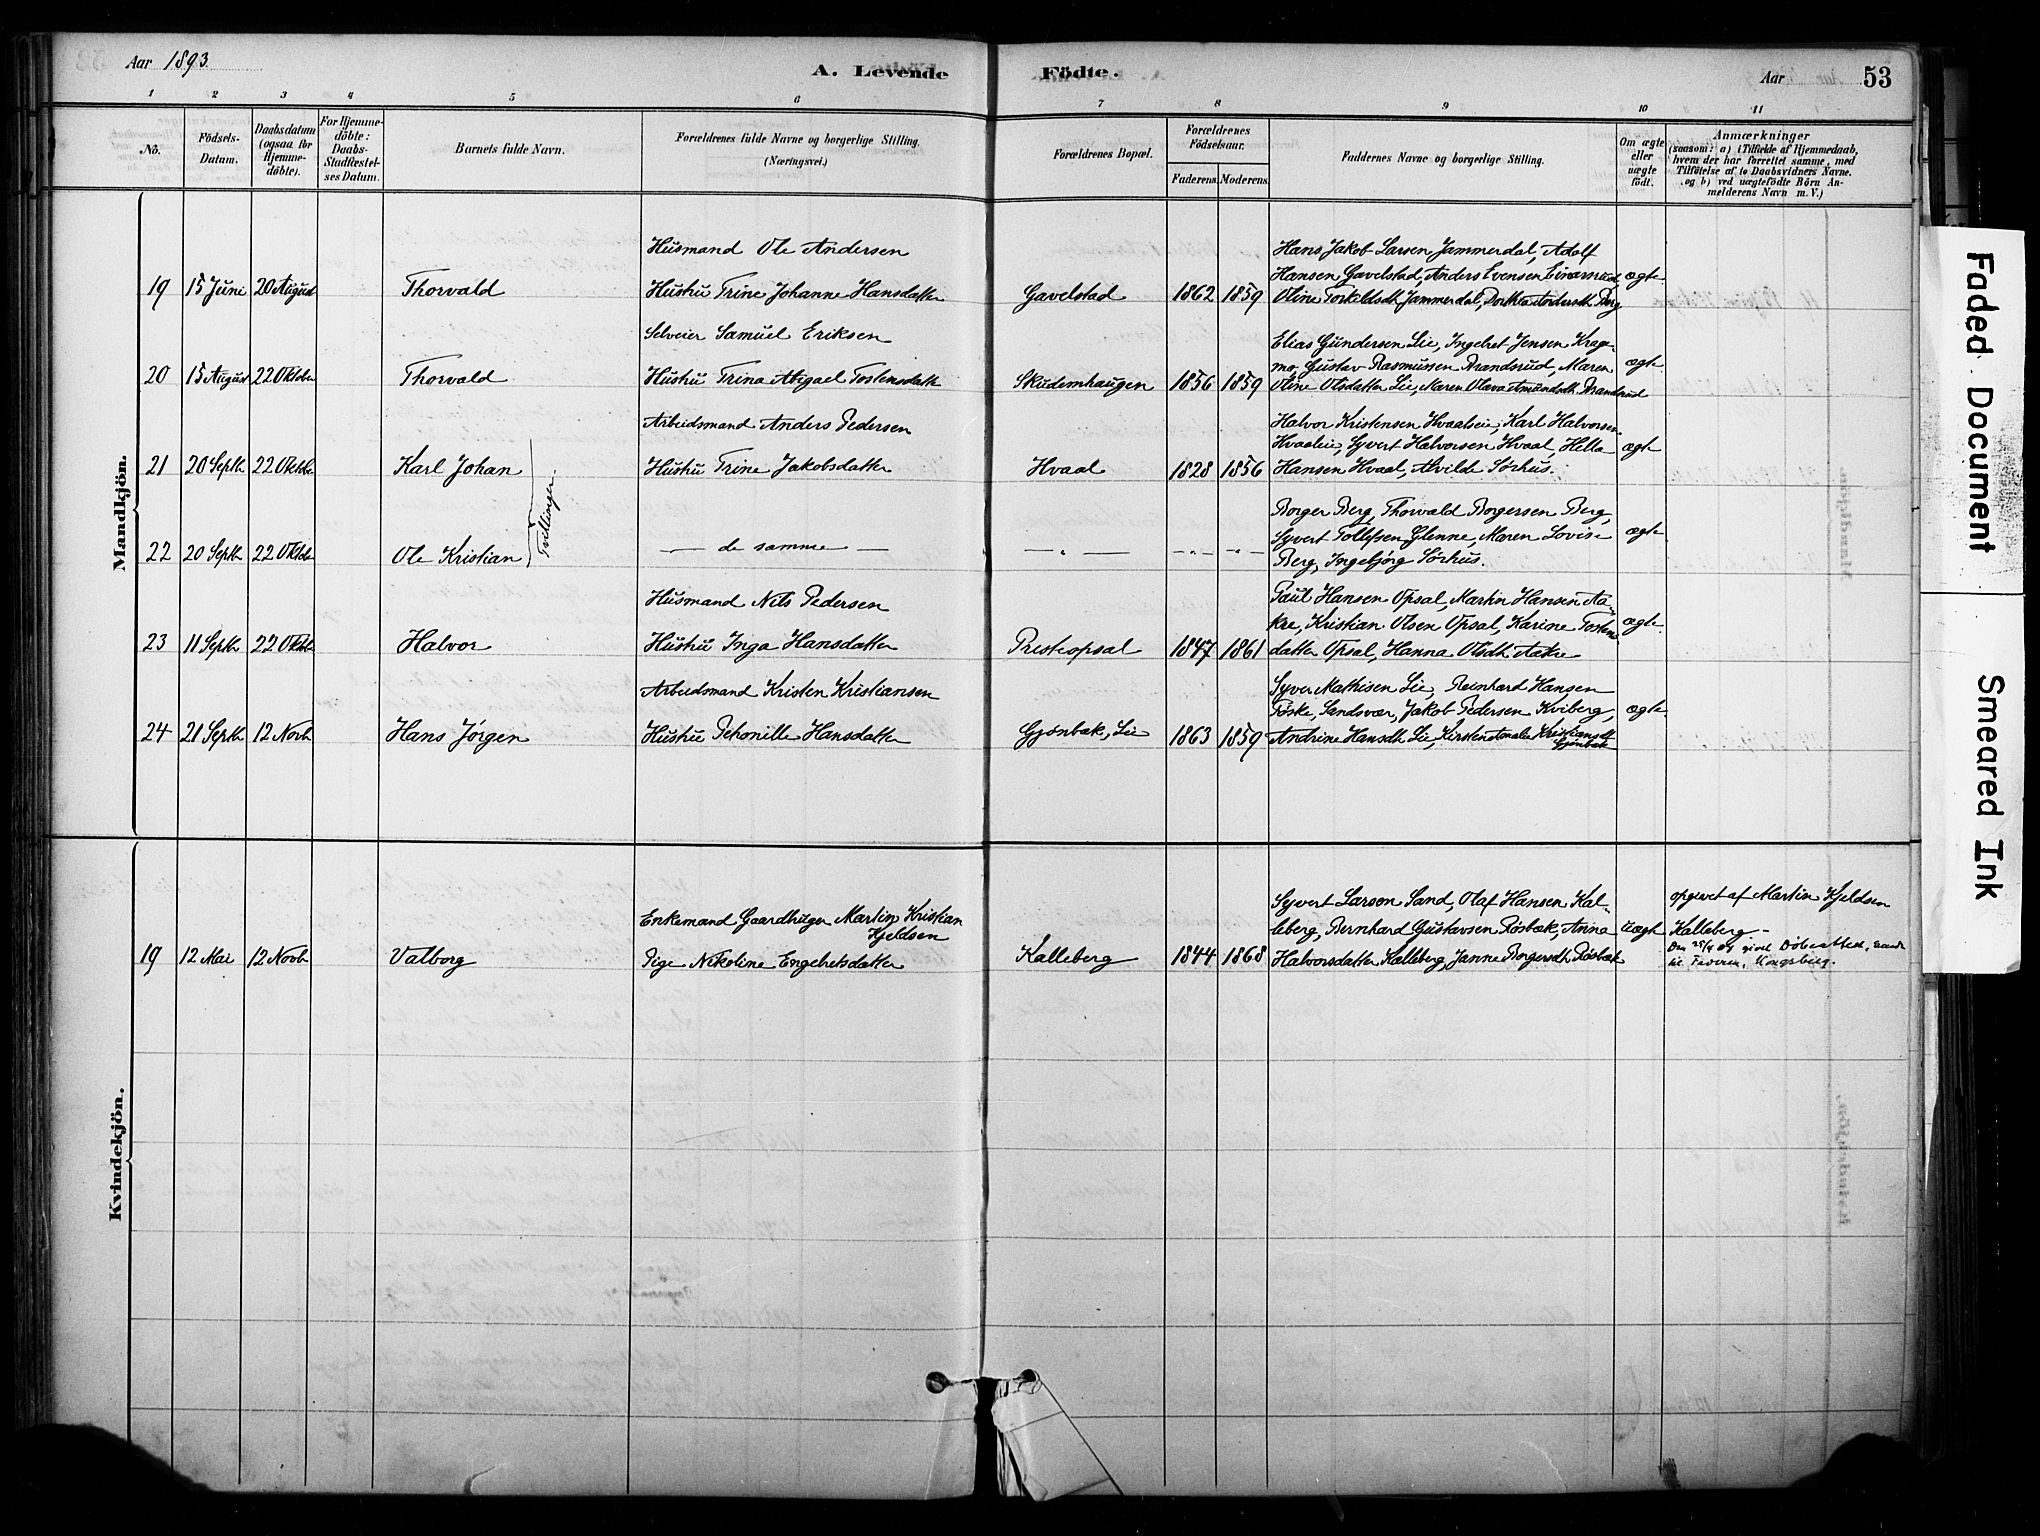 Aar 1893.
A. Levende
Födte.
Aar
53
1 2 3 4 5 6 7 8 9 10 11
No.
Födsels-
Datum.
Daabsdatum
(ogsaa for
Hjemme-
döbte).
For Hjemme-
döbte:
Daabs-
Stadfæstel-
ses Datum.
Barnets fulde Navn.
Forældrenes fulde Navne og borgerlige Stilling.
(Næringsvei.)
Forældrenes Bopæl.
Forældrenes
Födselsaar.
Faderens. Moderens.
Faddernes Navne og borgerlige Stilling.
Om ægte
eller
uægte
födt.
Anmærkninger
(saasom: a) i Tilfælde af Hjemmedaab,
hvem der har forrettet samme, med
Tilföielse af to Daabsvidners Navne.
og b) ved uægtefödte Börn An-
melderens Navn m. V.)
Mandkjön.
Husmand Ole Andersen
Hans Jakob Larsen Jammerdal, Adolf
Hansen Gavelstad, Anders Evensen Einarsrud, ægte
19 15 Juni 20 August Thorvald Hustru Trine Johanne Hansdatter Gavelstad 1862 1859 Oline Torkeldsdt Jammerdal, Dorthea Andersdt Berg
Selveier Samuel Eriksen
Elias Gundersen Lie, Ingebret Jensen Krage-
20 15 August 22 Oktober Thorvald Hustru Trina Abigael Tostensdatt Skudemhaugen 1856 1859 mo, Gustav Rasmussen Brandsrud, Maren ægte
Oline Olsdatter Lie, Maren Olava Amundsdt Brandsrud
Arbeidsmand Anders Pedersen
Halvor Kristensen Hvaaleie, Karl Halvorsen
Hvaaleie, Syvert Halvorsen Hvaal, Hella ægte
21 20 Septb 22 Oktober Karl Johan Hustru Trine Jakobsdatter Hvaal 1828 1856 Hansen Hvaal, Alvilde Sørhus.
Tvillinger
Borger Berg, Thorvald Borgersen Berg,
Syvert Tollefsen Glenne, Maren Lovise ægte
22 20 Septb 22 Oktober Ole Kristian — de samme — — " — — " — — " — Berg, Ingebjørg Sørhus.
Husmand Nils Pedersen
Paul Hansen Opsal, Martin Hansen Aa-
kre, Kristian Olsen Opsal, Karine Tostens- ægte
23 11 Septb 22 Oktbr Halvor Hustru Inga Hansdatter Presteopsal 1847 1861 datter Opsal, Hanna Olsdt Aakre
Arbeidsmand Kristen Kristiansen
Syver Mathisen Lie, Reinhard Hansen
Føske, Sandsvær, Jakob Pedersen Kviberg, ægte
24 21 Septb 12 Novb Hans Jørgen Hustru Petronille Hansdatter Gjønbæk, Lie 1863 1859 Andrine Hansdt Lie, Kirsten Amalie Kristiansdt
Gjønbæk
Kvindekjön.
Enkemand Gaardbruger Martin Kristian
Kjeldsen
Syvert Larson Sand, Olaf Hansen Kal-
leberg, Bernhard Gustavsen Røsbæk, Anna uægte
opgivet af Martin Kjeldsen
Kalleberg –
19 12 Mai 12 Novb Valborg Pige Nikoline Engebretsdatter Kalleberg 1844 1868 Halvorsdatter Kalleberg, Janne Borgersdt Røsbæk
Døbeattest, sendt
Kongsberg.
Faded Document
Smeared Ink